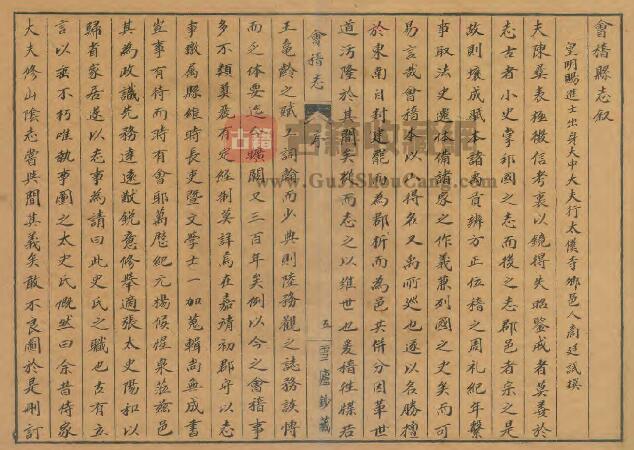 會稽縣志叙
皇明賜進士出身大中大夫行太僕寺卿邑人商廷試撰
夫陳藝表極徵信考衷以鏡得失昭鑒戒者莫善於
志古者小史掌邦國之志而後之志郡邑者宗之是
故則壤成賦本諸禹貢辨方正位稽之周礼紀年繫
事取法史遷体備諸家之作義兼列國之史矣而可
易言哉會稽本以山得名又禹所巡也遂以名勝擅
於東南自封建罷而為郡析而為邑共併分因革世
道汚隆於其間矣機而志之以維世也爰稽往牒若
會稽志
序
五
雪廬鈔藏
王龜齡之賦工詞翰而少典則陸務觀之誌務該博
而乏体要迄今曠闕又三百年矣例以今之會稽事
多不類奠厥有定經制莫詳焉在嘉靖初郡守以志
事檄属縣維時長吏暨文學士一加蒐輯尚無成書
豈事有待而時有會耶萬曆紀元楊候惺泉蒞茲邑
其為政識先務達遠猷銳意修舉適張太史陽和以
歸省家居遂以志事為請曰此史氏之職也古有立
言以垂不朽唯執事圖之太史氏慨然曰余昔侍家
大夫修山陰志嘗與聞其義矣敢不良圖於是刪訂
古籍
古籍收藏網
www.GuJiShouCang.com